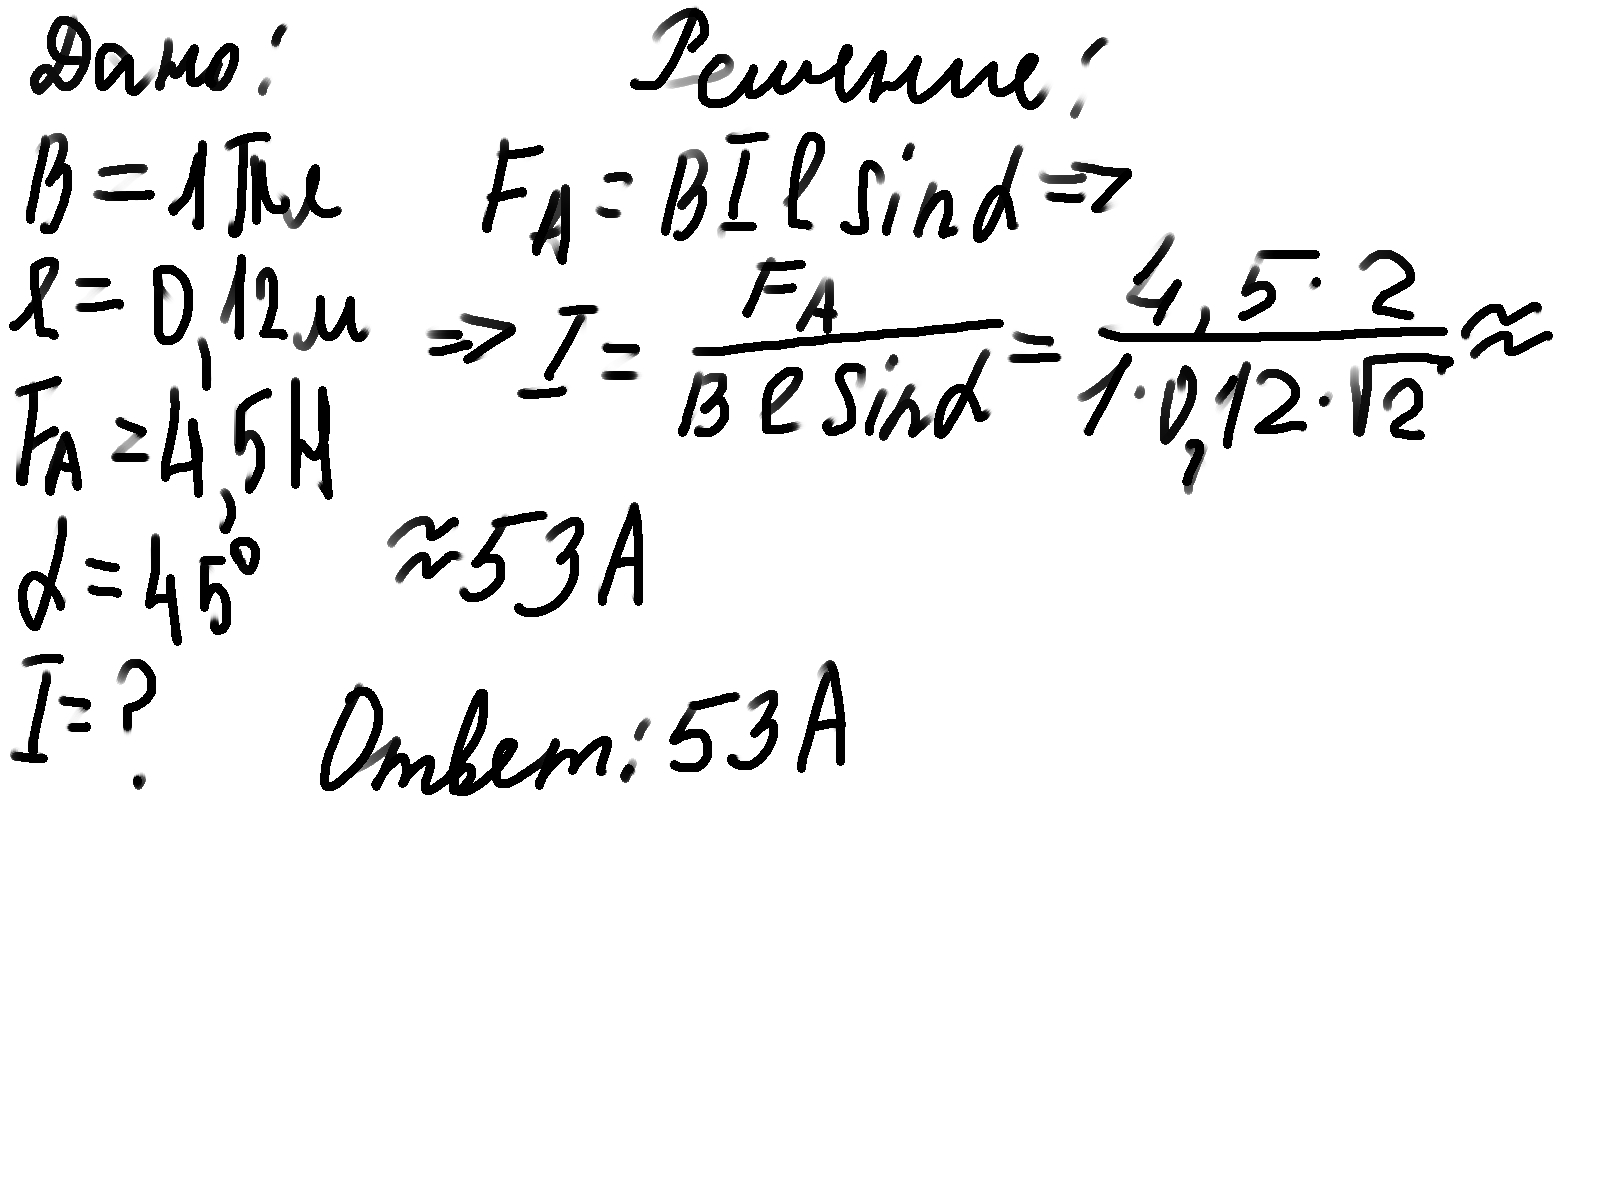 Дано:
B = 1 Тл
l = 0,12 м
F_A = 4,5 Н
α = 45°
I = ?
Решение:
F_A = B I l sin α =>
=> I = F_A / (B l sin α) = (4,5 · 2) / (1 · 0,12 · √2) ≈
≈ 53 А
Ответ: 53 А